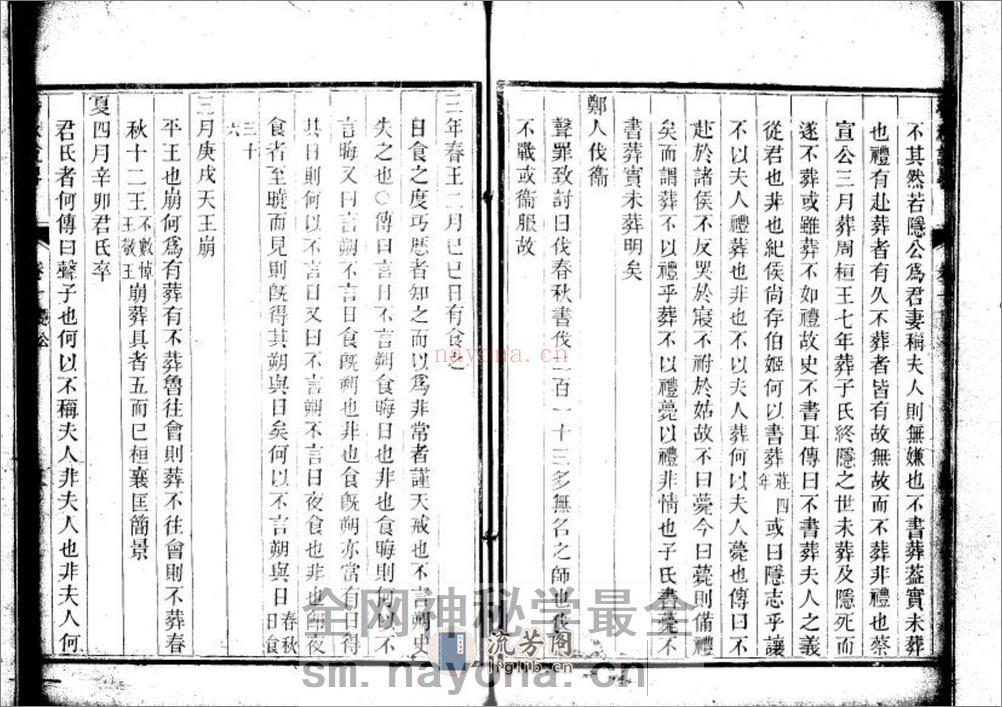 不其然若隱公爲君妻稱夫人則無嫌也不書葬葢實未葬
也禮有赴葬者有久不葬者皆有故無故而不葬非禮也蔡
宣公三月葬周桓王七年葬子氏終隱之世未葬及隱死而
遂不葬或雖葬不如禮故史不書耳傳曰不書葬夫人之義
從君也非也紀侯尙存伯姬何以書葬莊四年或曰隱志乎讓
不以夫人禮葬也非也不以夫人葬何以夫人薨也傳曰不
赴於諸侯不反哭於寢不祔於姑故不曰薨今曰薨則備禮
矣而謂葬不以禮乎葬不以禮薨以禮非情也子氏書薨不
書葬實未葬明矣
鄭人伐衞
聲罪致討曰伐春秋書伐二百一十三多無名之師也伐
不戰或衞服故
三年春王二月己巳日有食之
日食之度丏厯者知之而以爲非常者謹天戒也不言朔史
失之也○傳曰言日不言朔食晦日也非也食晦則何以不
言晦又曰言朔不言日食旣朔也非也食旣朔亦當有日得
其日則何以不言日又曰不言朔不言日夜食也非也旣夜
食者至曉而見則旣得其朔與日矣何以不言朔與日春秋日食
三十六
三月庚戌天王崩
平王也崩何爲有葬有不葬魯往會則葬不往會則不葬春
秋十二王不數悼王敬王崩葬具者五而已桓襄匡簡景
夏四月辛卯君氏卒
君氏者何傳曰聲子也何以不稱夫人非夫人也非夫人何
nayona.cn
全网神秘学最全
流芳阁
jsglib.cn
sm.nayona.cn